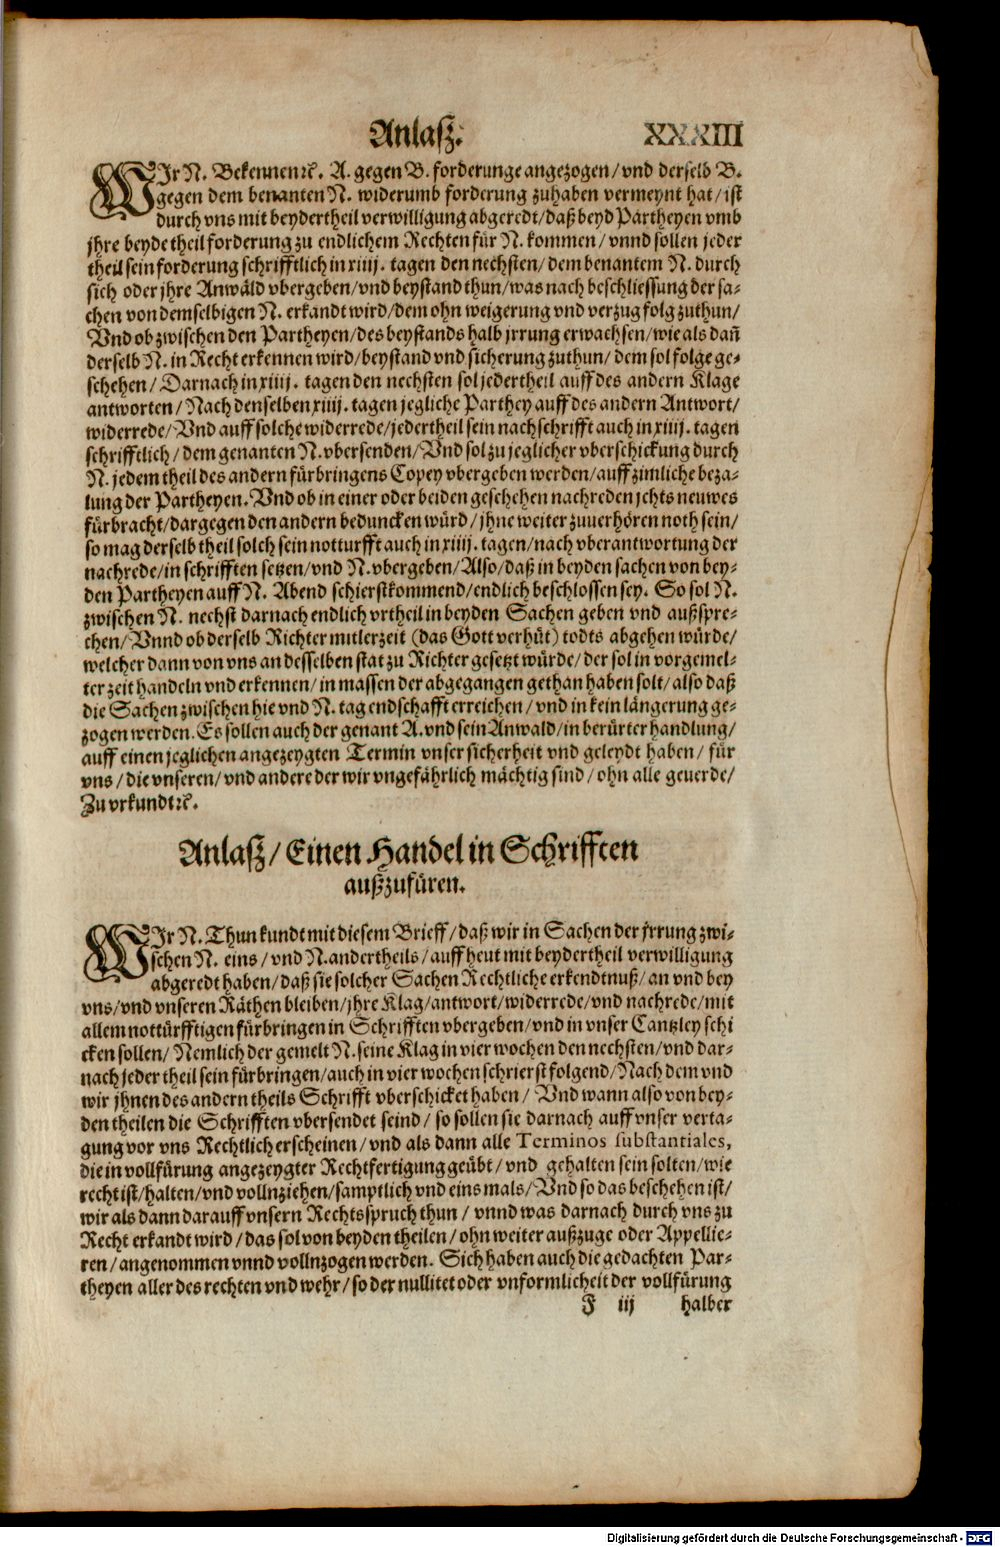 Anlaß. XXXIII
WIr N. Bekennen ꝛc. A. gegen B. forderunge angezogen / vnd derselb B.
gegen dem benanten N. widerumb forderung zuhaben vermeynt hat / ist
durch vns mit beydertheil verwilligung abgeredt / daß beyd Partheyen vmb
jhre beyde theil forderung zu endlichem Rechten für N. kommen / vnnd sollen jeder
theil sein forderung schrifftlich in xiiij. tagen den nechsten / dem benantem N. durch
sich oder jhre Anwäld vbergeben / vnd beystand thun / was nach beschliessung der sa-
chen von demselbigen N. erkandt wird / dem ohn weigerung vnd verzug folg zuthun /
Vnd ob zwischen den Partheyen / des beystands halb jrrung erwachsen / wie als dañ
derselb N. in Recht erkennen wird / beystand vnd sicherung zuthun / dem sol folge ge-
schehen / Darnach in xiiij. tagen den nechsten sol jedertheil auff des andern Klage
antworten / Nach denselben xiiij. tagen jegliche Parthey auff des andern Antwort /
widerrede / Vnd auff solche widerrede / jedertheil sein nachschrifft auch in xiiij. tagen
schrifftlich / dem genanten N. vbersenden / Vnd sol zu jeglicher vberschickung durch
N. jedem theil des andern fürbringens Copey vbergeben werden / auff zimliche beza-
lung der Partheyen. Vnd ob in einer oder beiden geschehen nachreden jchts neuwes
fürbracht / dargegen den andern beduncken würd / jhne weiter zuuerhören noth sein /
so mag derselb theil solch sein notturfft auch in xiiij. tagen / nach vberantwortung der
nachrede / in schrifften setzen / vnd N. vbergeben / Also / daß in beyden sachen von bey-
den Partheyen auff N. Abend schierstkommend / endlich beschlossen sey. So sol N.
zwischen N. nechst darnach endlich vrtheil in beyden Sachen geben vnd außspre-
chen / Vnnd ob derselb Richter mitlerzeit (das Gott verhüt) todts abgehen würde /
welcher dann von vns an desselben stat zu Richter gesetzt würde / der sol in vorgemel-
ter zeit handeln vnd erkennen / in massen der abgegangen gethan haben solt / also daß
die Sachen zwischen hie vnd N. tag endschafft erreichen / vnd in kein längerung ge-
zogen werden. Es sollen auch der genant A. vnd sein Anwald / in berürter handlung /
auff einen jeglichen angezeygten Termin vnser sicherheit vnd geleydt haben / für
vns / die vnseren / vnd andere der wir vngefährlich mächtig sind / ohn alle geuerde /
Zu vrkundt ꝛc.
Anlaß / Einen Handel in Schrifften
außzufüren.
WIr N. Thun kundt mit diesem Brieff / daß wir in Sachen der jrrung zwi-
schen N. eins / vnd N. andertheils / auff heut mit beydertheil verwilligung
abgeredt haben / daß sie solcher Sachen Rechtliche erkendtnuß / an vnd bey
vns / vnd vnseren Räthen bleiben / jhre Klag / antwort / widerrede / vnd nachrede / mit
allem nottürfftigen fürbringen in Schrifften vbergeben / vnd in vnser Cantzley schi
cken sollen / Nemlich der gemelt N. seine Klag in vier wochen den nechsten / vnd dar-
nach jeder theil sein fürbringen / auch in vier wochen schrierst folgend / Nach dem vnd
wir jhnen des andern theils Schrifft vberschicket haben / Vnd wann also von bey-
den theilen die Schrifften vbersendet seind / so sollen sie darnach auff vnser verta-
gung vor vns Rechtlich erscheinen / vnd als dann alle Terminos substantiales,
die in vollfürung angezeygter Rechtfertigung geübt / vnd gehalten sein solten / wie
recht ist / halten / vnd vollnziehen / samptlich vnd eins mals / Vnd so das beschehen ist /
wir als dann darauff vnsern Rechtsspruch thun / vnnd was darnach durch vns zu
Recht erkandt wird / das sol von beyden theilen / ohn weiter außzuge oder Appellie-
ren / angenommen vnnd vollnzogen werden. Sich haben auch die gedachten Par-
theyen aller des rechten vnd wehr / so der nullitet oder vnformlicheit der vollfürung
F iij halber
Digitalisierung gefördert durch die Deutsche Forschungsgemeinschaft - DFG